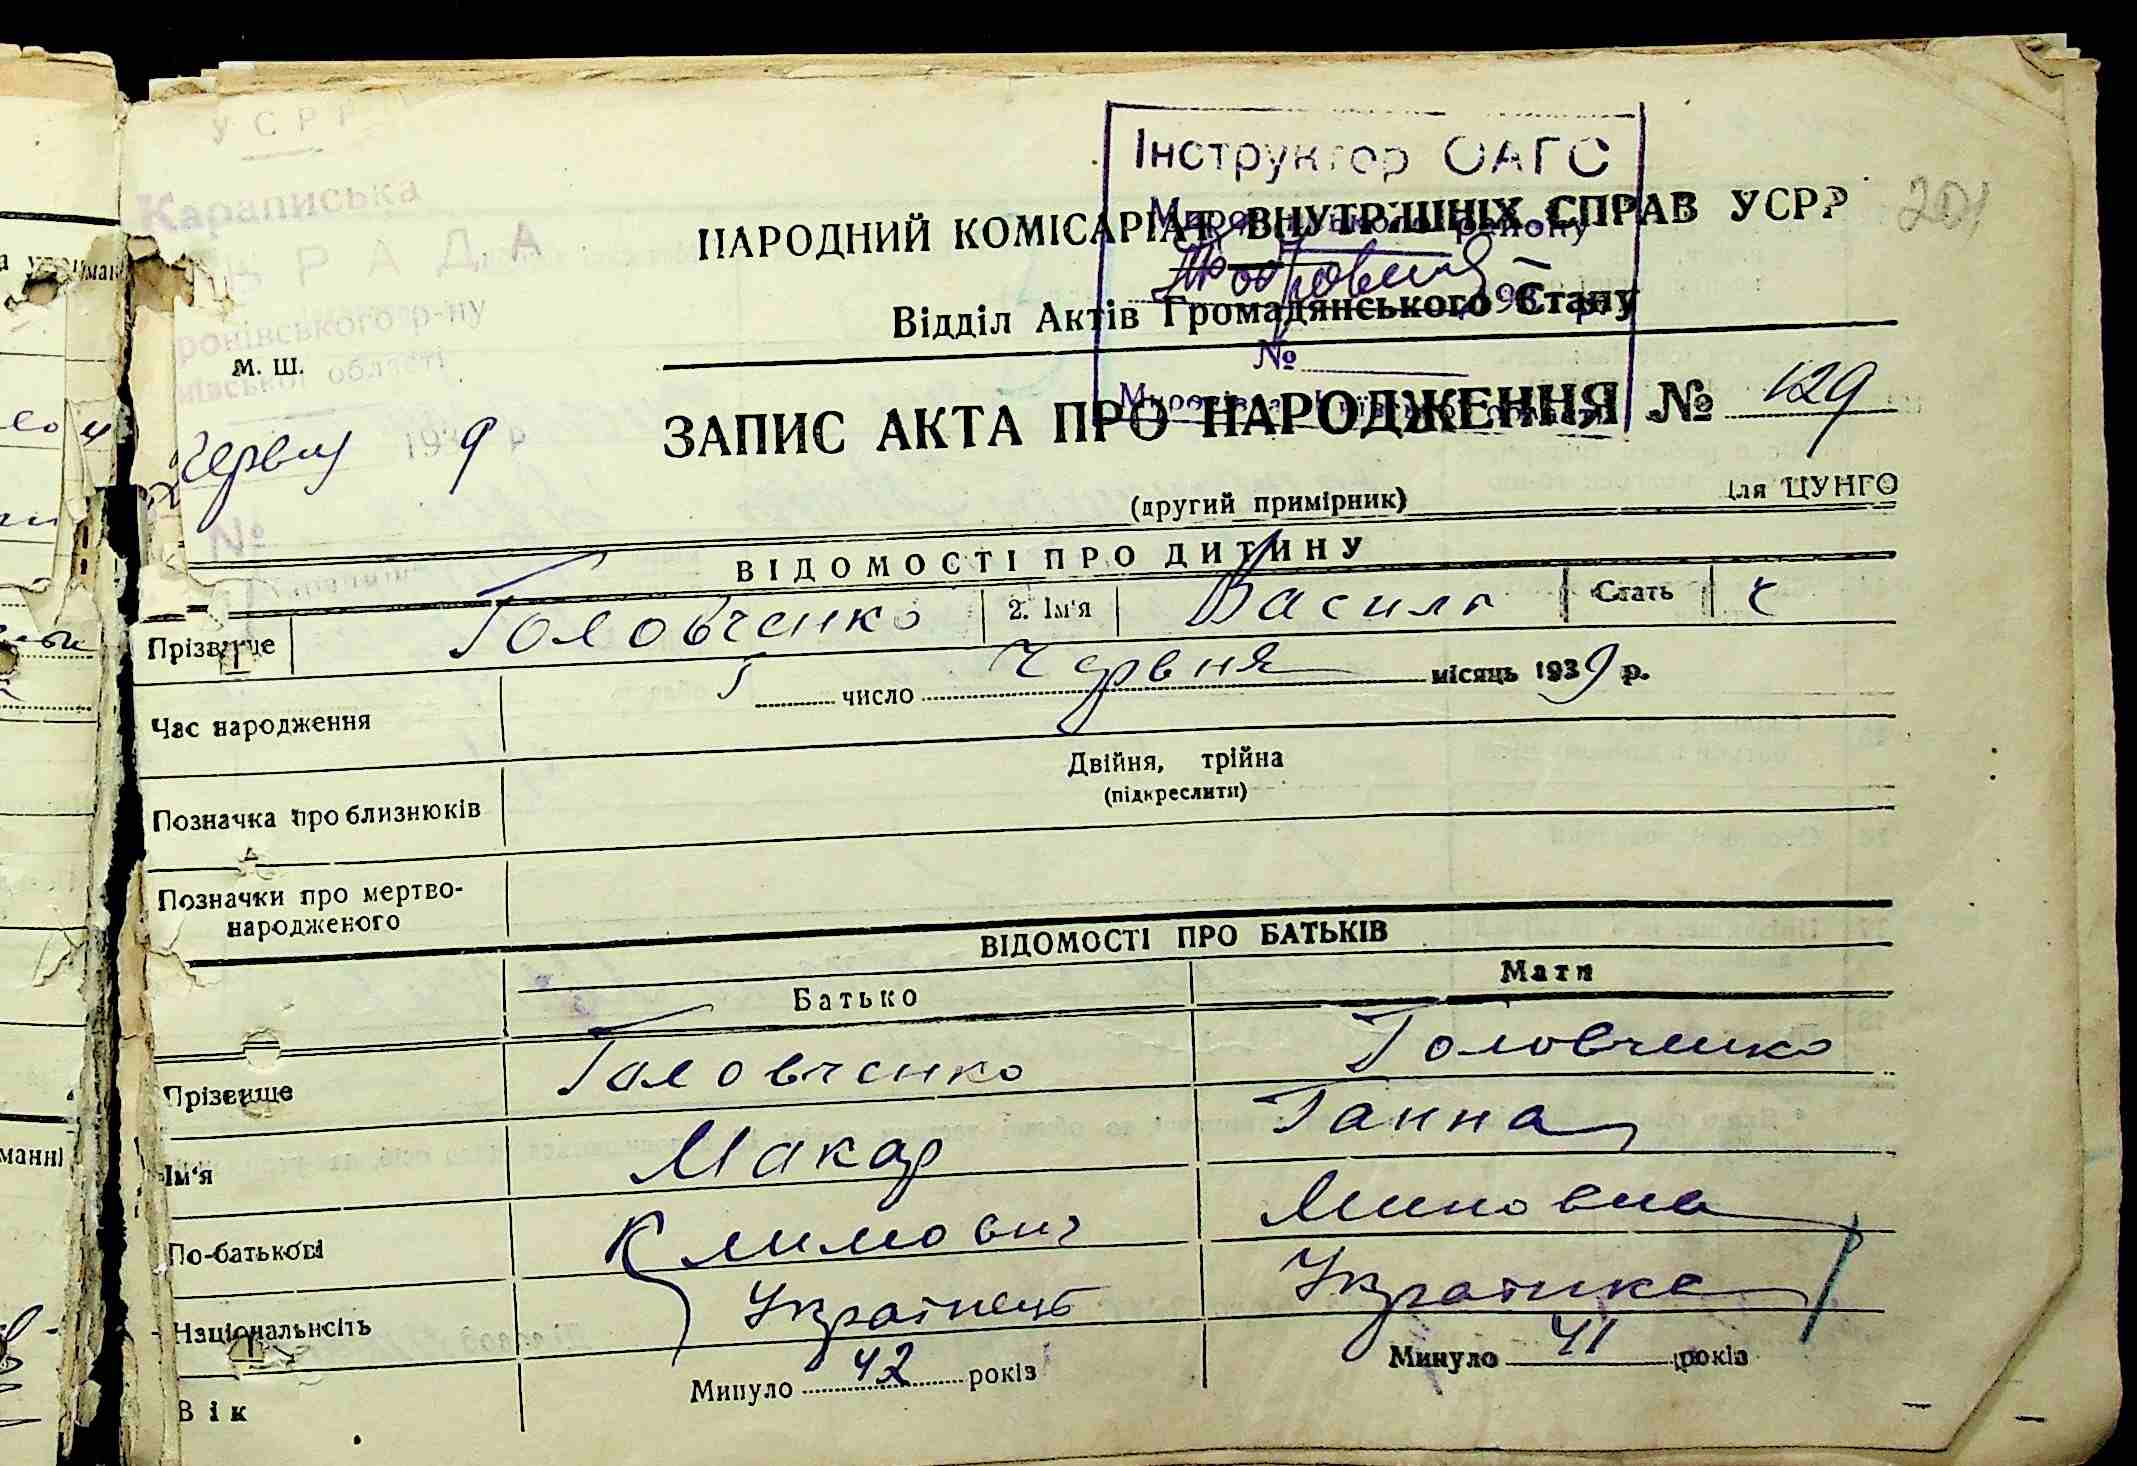 УСРР
Караписька
РАДА
ронівського р-ну
ївської області
м. ш.
Червня 193 9 р
№
Інструктор ОАГС
району
№
201
НАРОДНИЙ КОМІСАРІАТ ВНУТРІШНІХ СПРАВ УСРР
Відділ Актів Громадянського Стану
ЗАПИС АКТА ПРО НАРОДЖЕННЯ № 129
(другий примірник) для ЦУНГО
ВІДОМОСТІ ПРО ДИТИНУ
Прізвище Головченко 2. Ім'я Василь Стать ч
Час народження 5 число Червня місяць 1939 р.
Позначка про близнюків Двійня, трійна
(підкреслити)
Позначки про мертво-
народженого
ВІДОМОСТІ ПРО БАТЬКІВ
Батько Мати
Прізвище Головченко Головченко
Ім'я Макар Ганна
По-батькові Климович Миновна
Національність Українець Українка
Вік Минуло 42 років Минуло 41 років